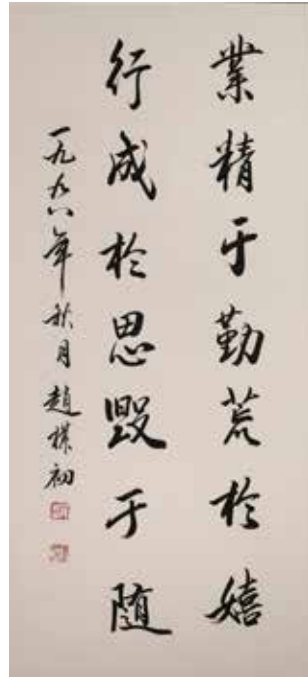 業精于勤荒於嬉
行成於思毀于随
一九九八年秋月趙樸初